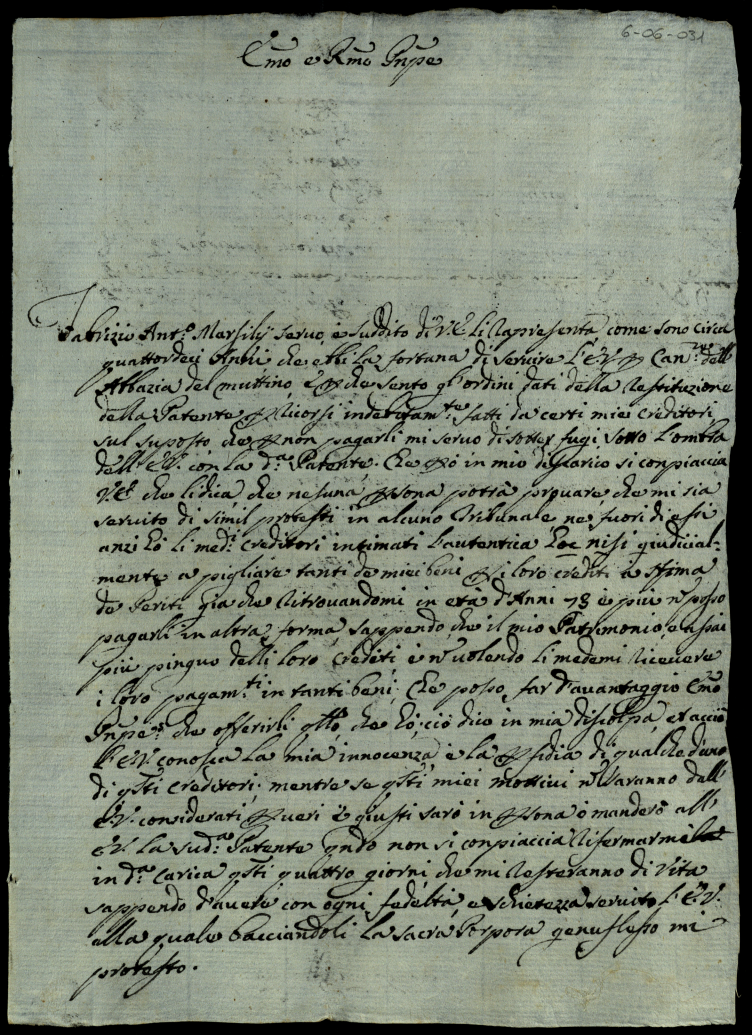 6-06-031
Emo e Rmo Pnpe
Fabrizio Ant.o Marsilij servo, e suddito di V.E. Li rapresenta come sono circa
quattordeci Anni che ebbi la fortuna di servire l'E.V. p Can.re dell'
Abbazia del muttino, e p che sento gl'ordini dati della restituzione
della Patente p ricorsi indebitam.te fatti da certi miei creditori
sul suposto che p non pagarli mi servo di sotter fugi, sotto l'ombra
dell'E.V. con la d.a Patente. Che però in mio discarico si conpiaccia
V.E. che li dica, che nesuna psona potrà provare che mi sia
servito di simil protesti in alcuno Tribunale ne fuori di essi
anzi hò li med.i creditori intimati l'autentica hoc nisi giudicial-
mente a pigliare tanti de miei beni p i loro crediti a stima
de Periti già che ritrovandomi in età d'Anni 78 e più n posso
pagarli in altra forma, sappendo, che il mio Patrimonio, e assai
più pinguo delli loro crediti e n volendo li medemi ricevere
i loro pagam.ti in tanti beni; Che posso far d'avantaggio Emo
Pnpe, che offerirli qllo, che hò; ciò dico in mia discolpa, et acciò
l'E.V. conosca la mia innocenza, e la pfidia di qualched'uno
di qsti creditori; mentre se qsti miei mottivi n saranno dall'
E.V. considerati p veri e giusti sarò in psona ò manderò all'
E.V. la sud.a Patente qndo non si conpiaccia rifermarmi
in d.a Carica qsti quattro giorni, che mi resteranno di vita
sappendo d'avere con ogni fedeltà, e schietezza servito l'E.V.
alla quale bacciandoli la sacra Porpora genuflesso mi
protesto.